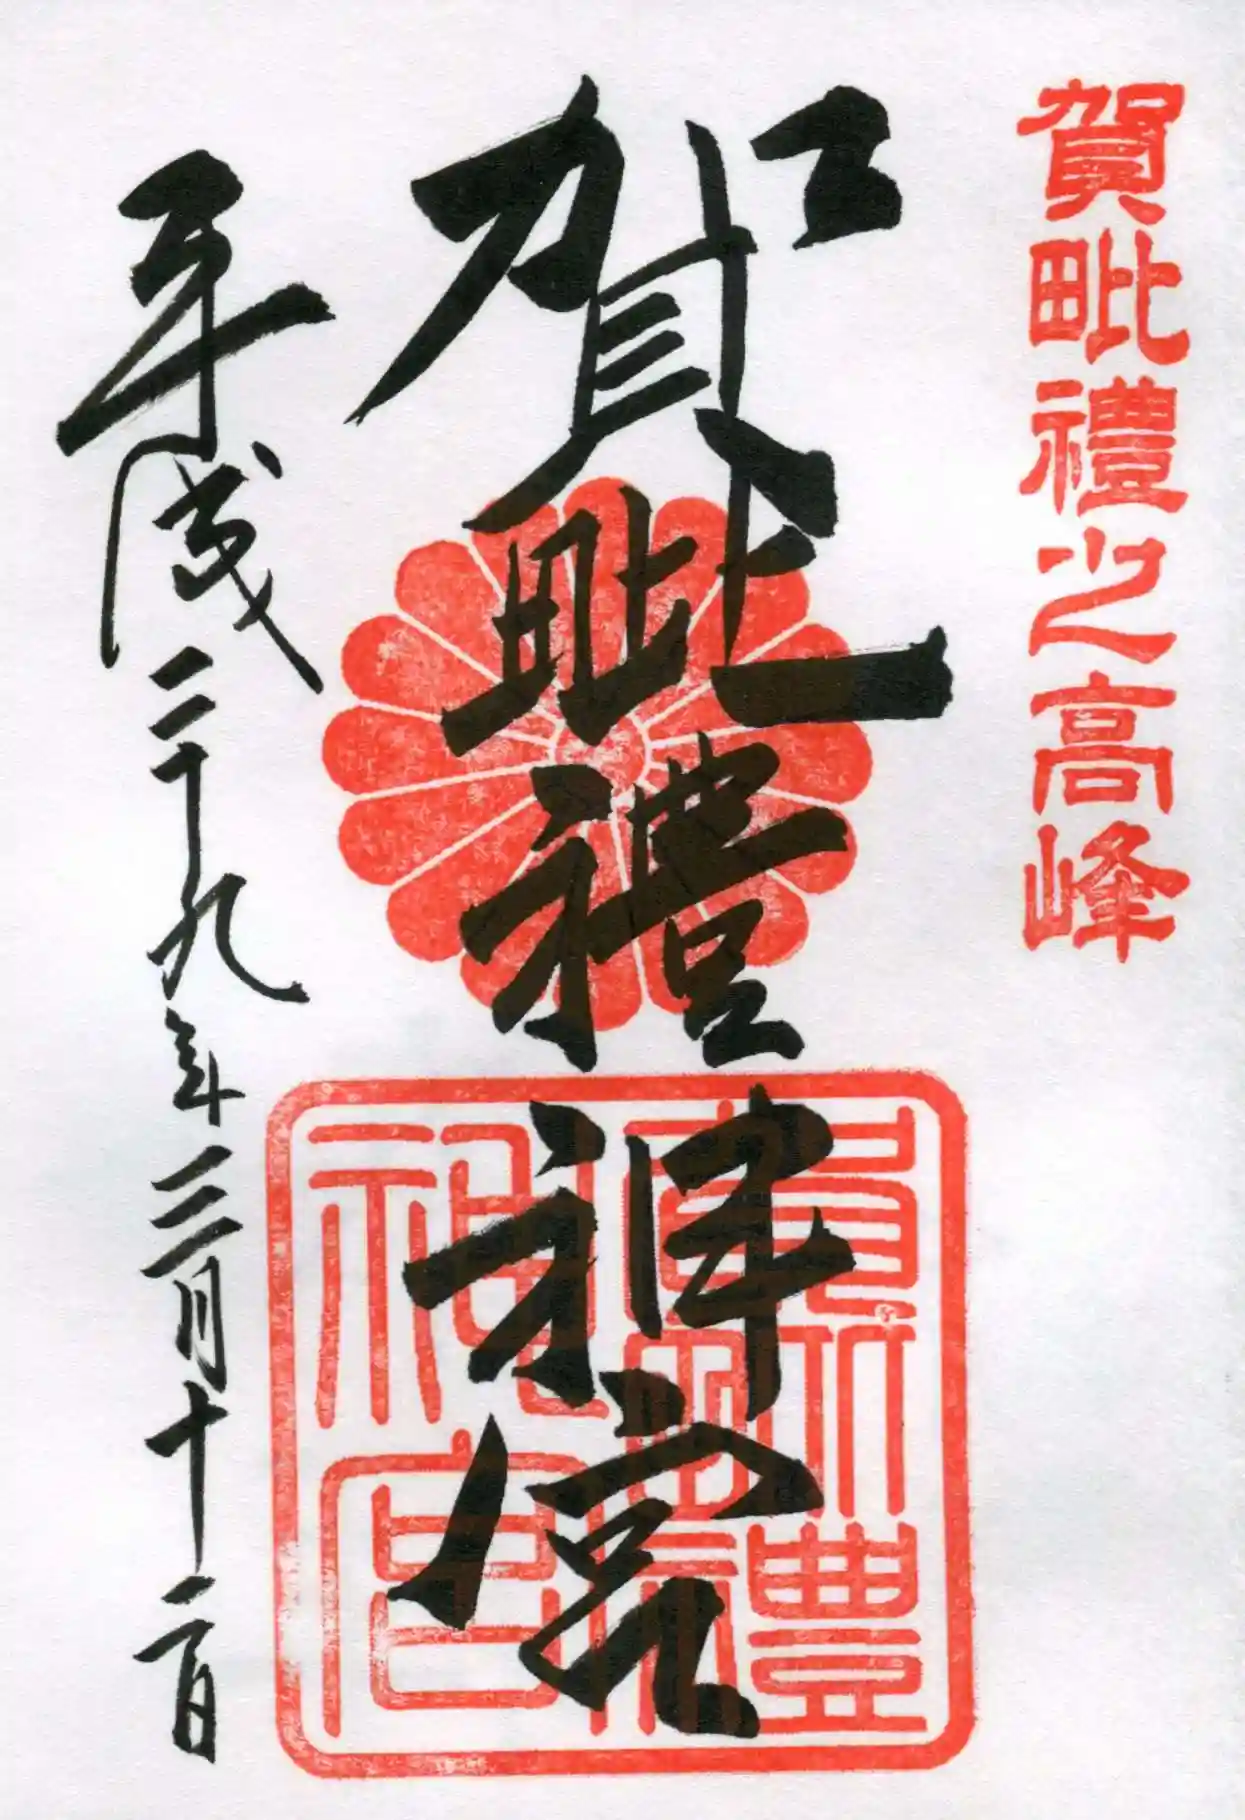 賀毗禮之高峰
賀毗禮神宮
賀毗禮神宮
平成二十九年三月十二日